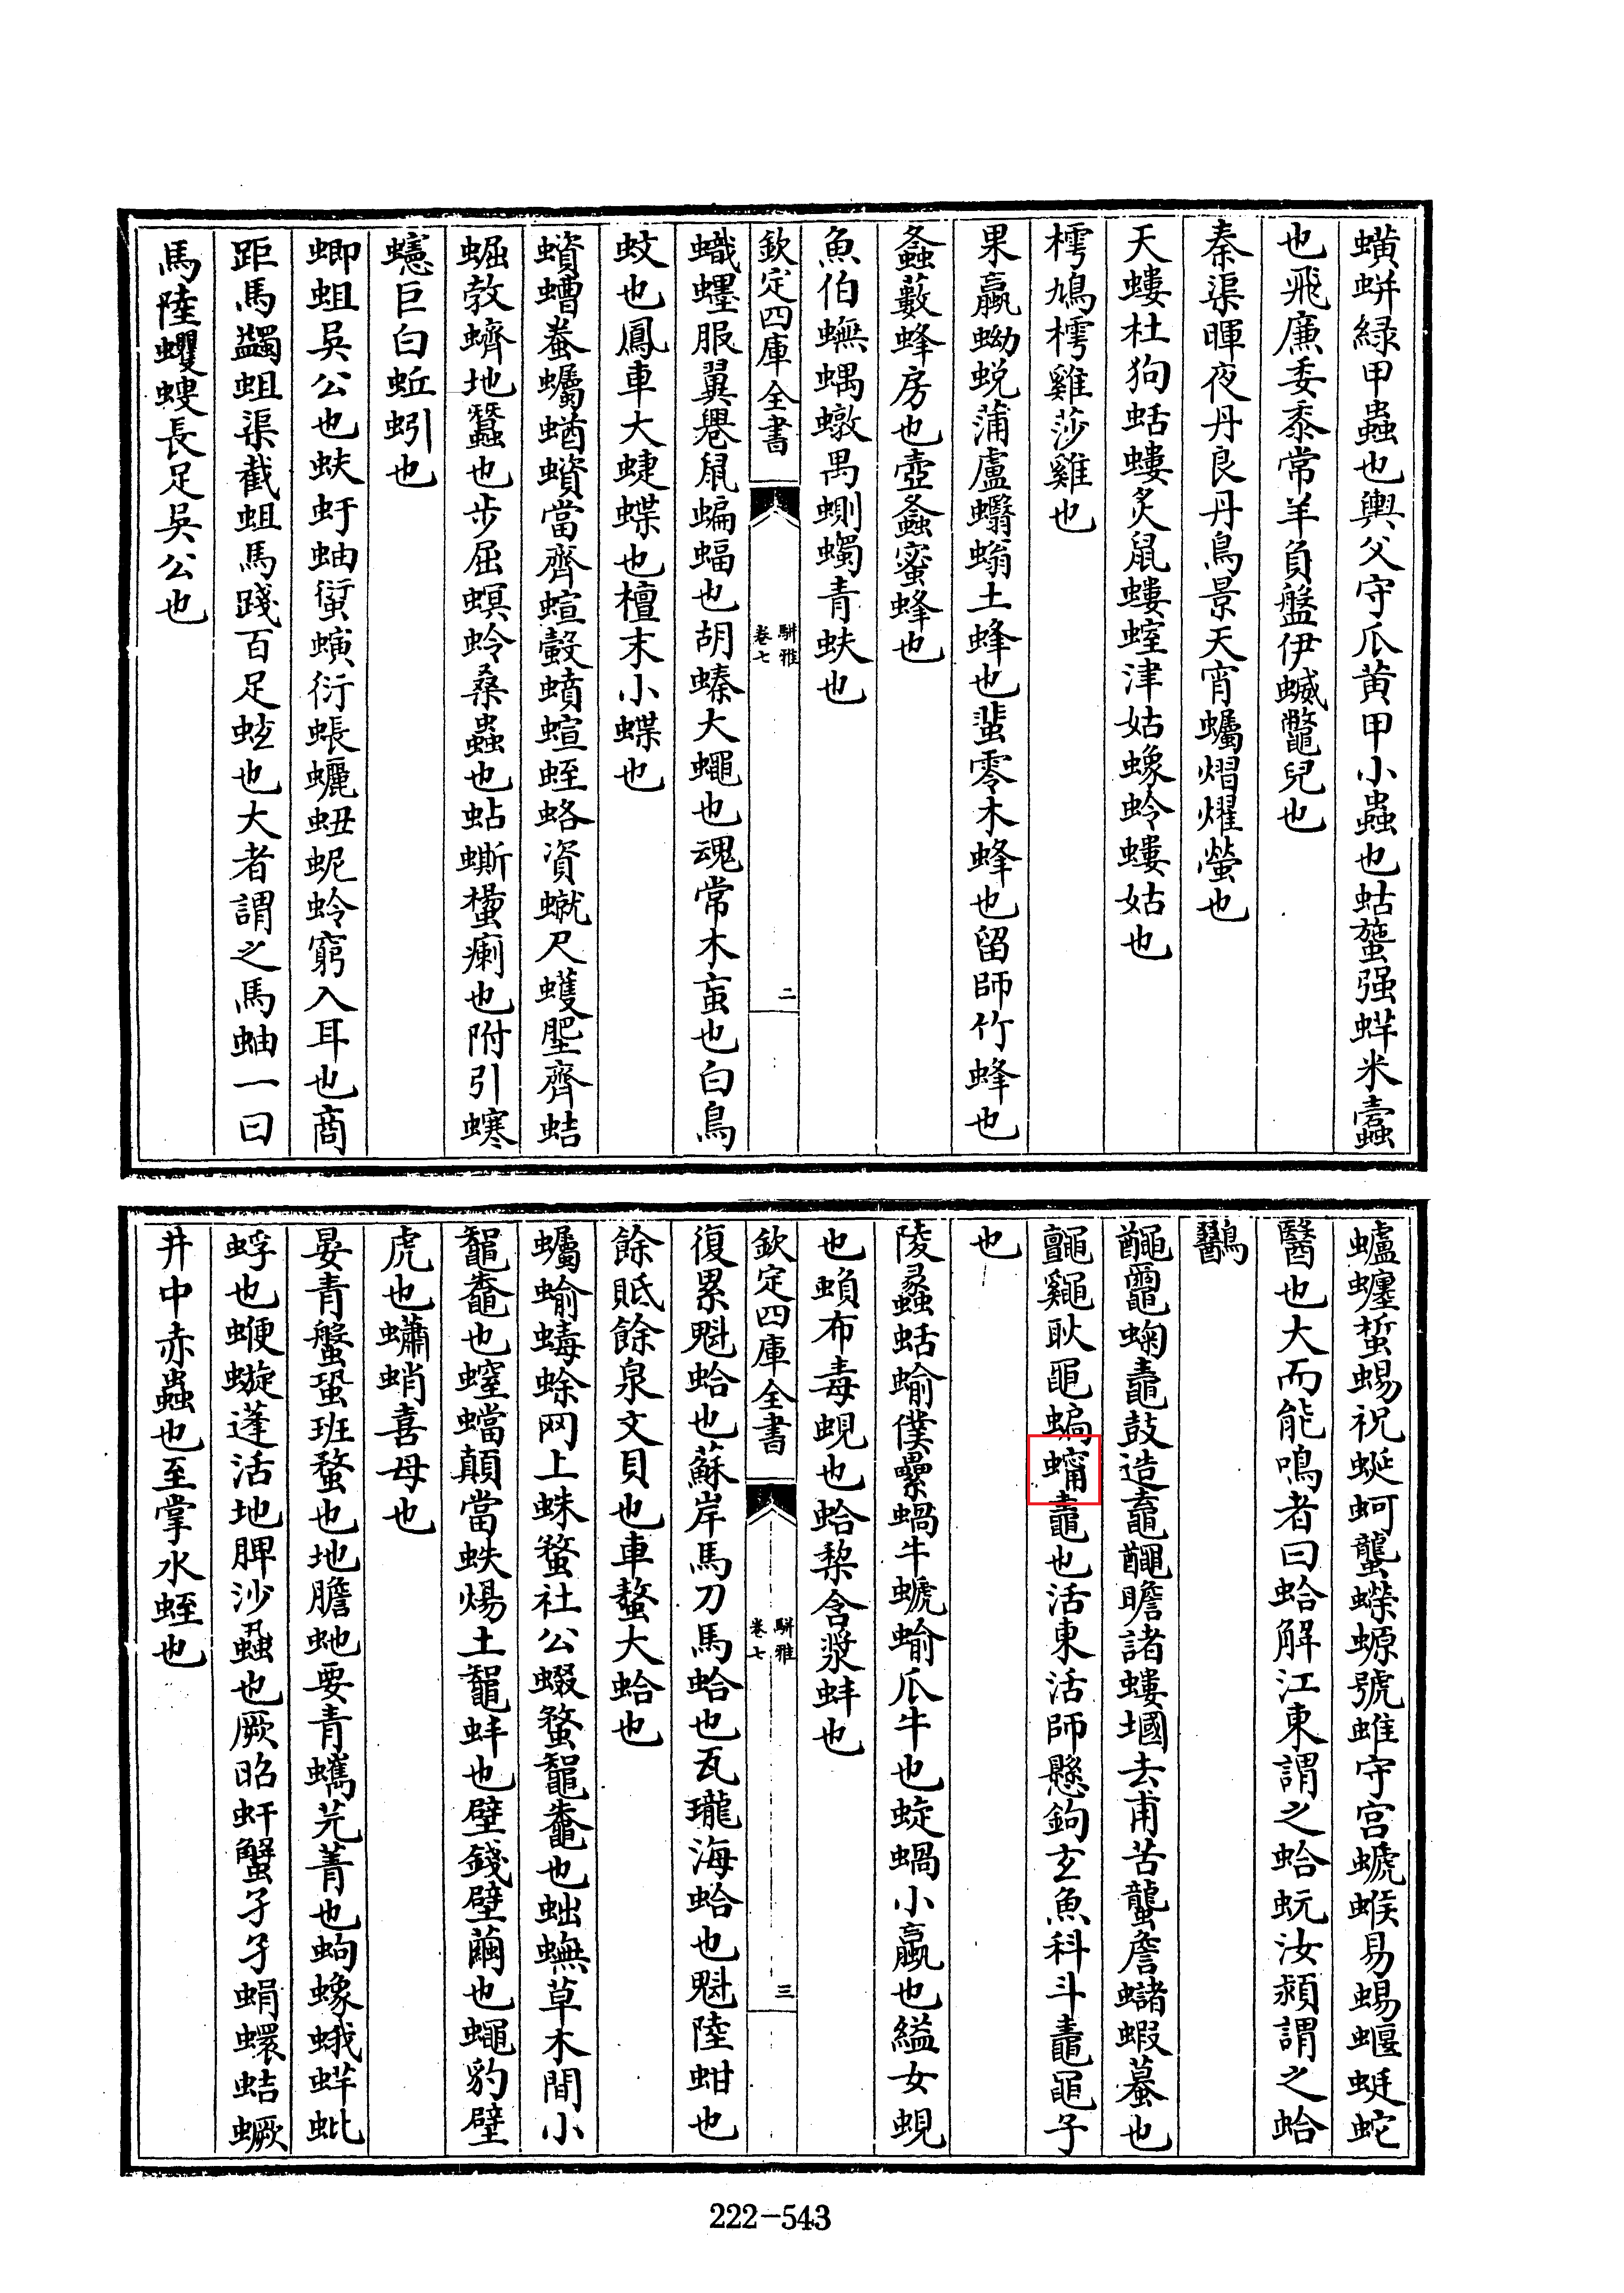 蠎蛢緑甲蟲也輿父守瓜黄甲小蟲也蛄䗐强蛘米蠹
也飛廉委黍常羊負盤伊蝛鼈兒也
秦渠暉夜丹良丹鳥景天宵蠾熠燿螢也
天螻杜狗蛞螻炙鼠螻蛭津姑蟓蛉螻姑也
樗鳩樗雞莎雞也
果蠃蚴蜕蒲盧蠮螉土蜂也蜚零木蜂也留師竹蜂也
螽蔌蜂房也壺螽蜜蜂也
魚伯蟱蝺蠍禺蝍蠋青蚨也
欽定四庫全書
駢雅
卷七
二
蟙䘃服翼鼠蝙蝠也胡螓大蠅也魂常木䖟也白鳥
蚊也鳳車大蜨蝶也檀末小蝶也
蠀螬蠾蝤蠀當齊蝖螜蟦蝖蛭蛒資蝛尺蠖肥齊蛣
蝠敎蠐地蠶也步屈螟蛉桑蟲也蛅蟴瘌也附引螼
蟪巨白蚯蚓也
蝍蛆吳公也蚨虶蚰蜒螾衍䗅蠷蚭蛉窮入耳也商
距馬蠲蛆渠截蛆馬踐百足虴也大者謂之馬蚰一曰
馬陸蠼螋長足吳公也
蠦䗺蜤蜴祝蜒蚵蠪蠑螈號蜼守宫螔䗔易蜴蝘蜓蛇
醫也大而能鳴者曰蛤解江東謂之蛤蚖汝潁謂之蛤
鷖
鼁䵷蝫鼃鼓造瞻諸螻蟈去甫苦蠪詹蠩蝦蟇也
耿黽蝙鼃也活東活師懸鉤玄魚科斗鼃黽子
也
陵螽蛞蝓僕纍蝸牛螔蝓瓜牛也蜁蝸小蠃也縊女蜆
也蝢布毒蜆也蛤棃含漿蚌也
欽定四庫全書
駢雅
卷七
三
復累魁蛤也蘇岸馬刀馬蛤也瓦瓏海蛤也魁陸蚶也
餘貾餘泉文貝也車螯大蛤也
蠾蝓蝳蜍网上蛛蝥社公蝃蝥鼅鼄也蚍蟱草木間小
鼅鼄也螲蟷顛當蛈蝪土鼅蚌也壁錢壁繭也蠅豹壁
虎也蠨蛸喜母也
晏青螌蝥班蝥也地膽虵要青蠵芫菁也蚼蟓蛾蛘蚍
蜉也蝘蝣蓬活地脾沙蝨也厥昭虷蟹孑孓蜎蠉蛣蟩
井中赤蟲也至掌水蛭也
222-543